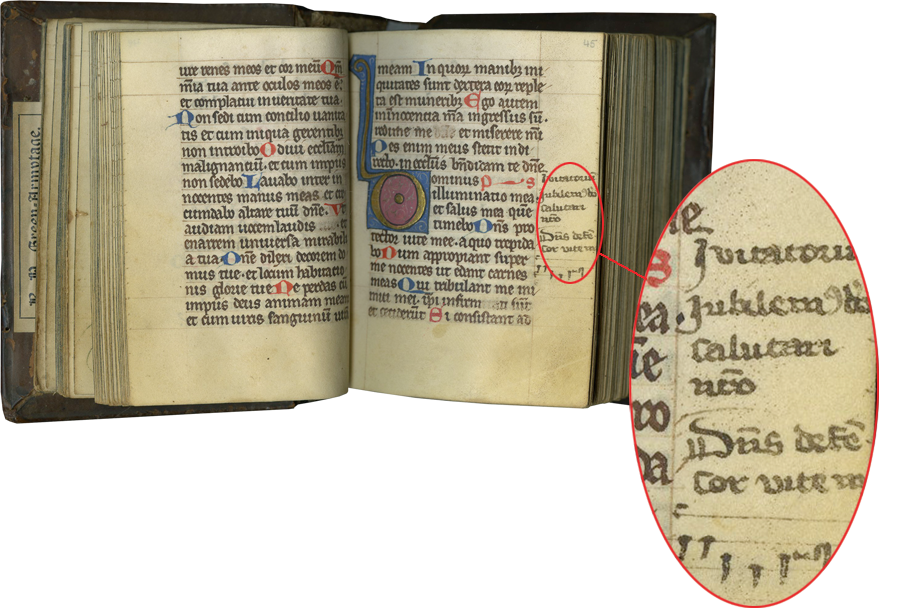 ure renes meos et cor meũ Qm̃
mia tua ante oculos meos ẽ.
et complacui in veritate tua.
Non sedi cum concilio vanita
tis et cum iniqua gerentibꝫ
non introibo Odivi ecclīam
malignantiũ. et cum impiis
non sedebo Lavabo inter in
nocentes manus meas et cir
cumdabo altare tuũ dñe. Vt
audiam vocem laudis et
enarrem universa mirabilia
a tua Dñe dilexi decorem do
mus tue. et locum habitatio
nis glorie tue Ne perdas cũ
impiis deus animam meam
et cum viris sanguinũ vitã
45
meam In quorꝫ manibꝫ ini
quitates sunt dextera eorꝫ reple
ta est muneribꝫ Ego autem
in innocentia mea ingressus sũ
redime me et miserere mei
Pes enim meus stetit in di
recto. in ecclīis bñdicam te dñe.
Dominus p s
illuminatio mea.
et salus mea quẽ
timebo Dñs pro
tector vite mee. a quo trepida
bo Dum appropiant super
me nocentes ut edant carnes
meas Qui tribulant me ini
mici mei. ipi infirmati sũt
et ceciderũt Si consistant ad
Ivitatoriũ
Jubilem9 do
salutari
nr̃o
Dñs defẽ
sor vite m
P. D. Green-Armytage.
Ivitatoriu
Jubilem9 do
salutari
nr̃o
Dñs defẽ
sor vite m